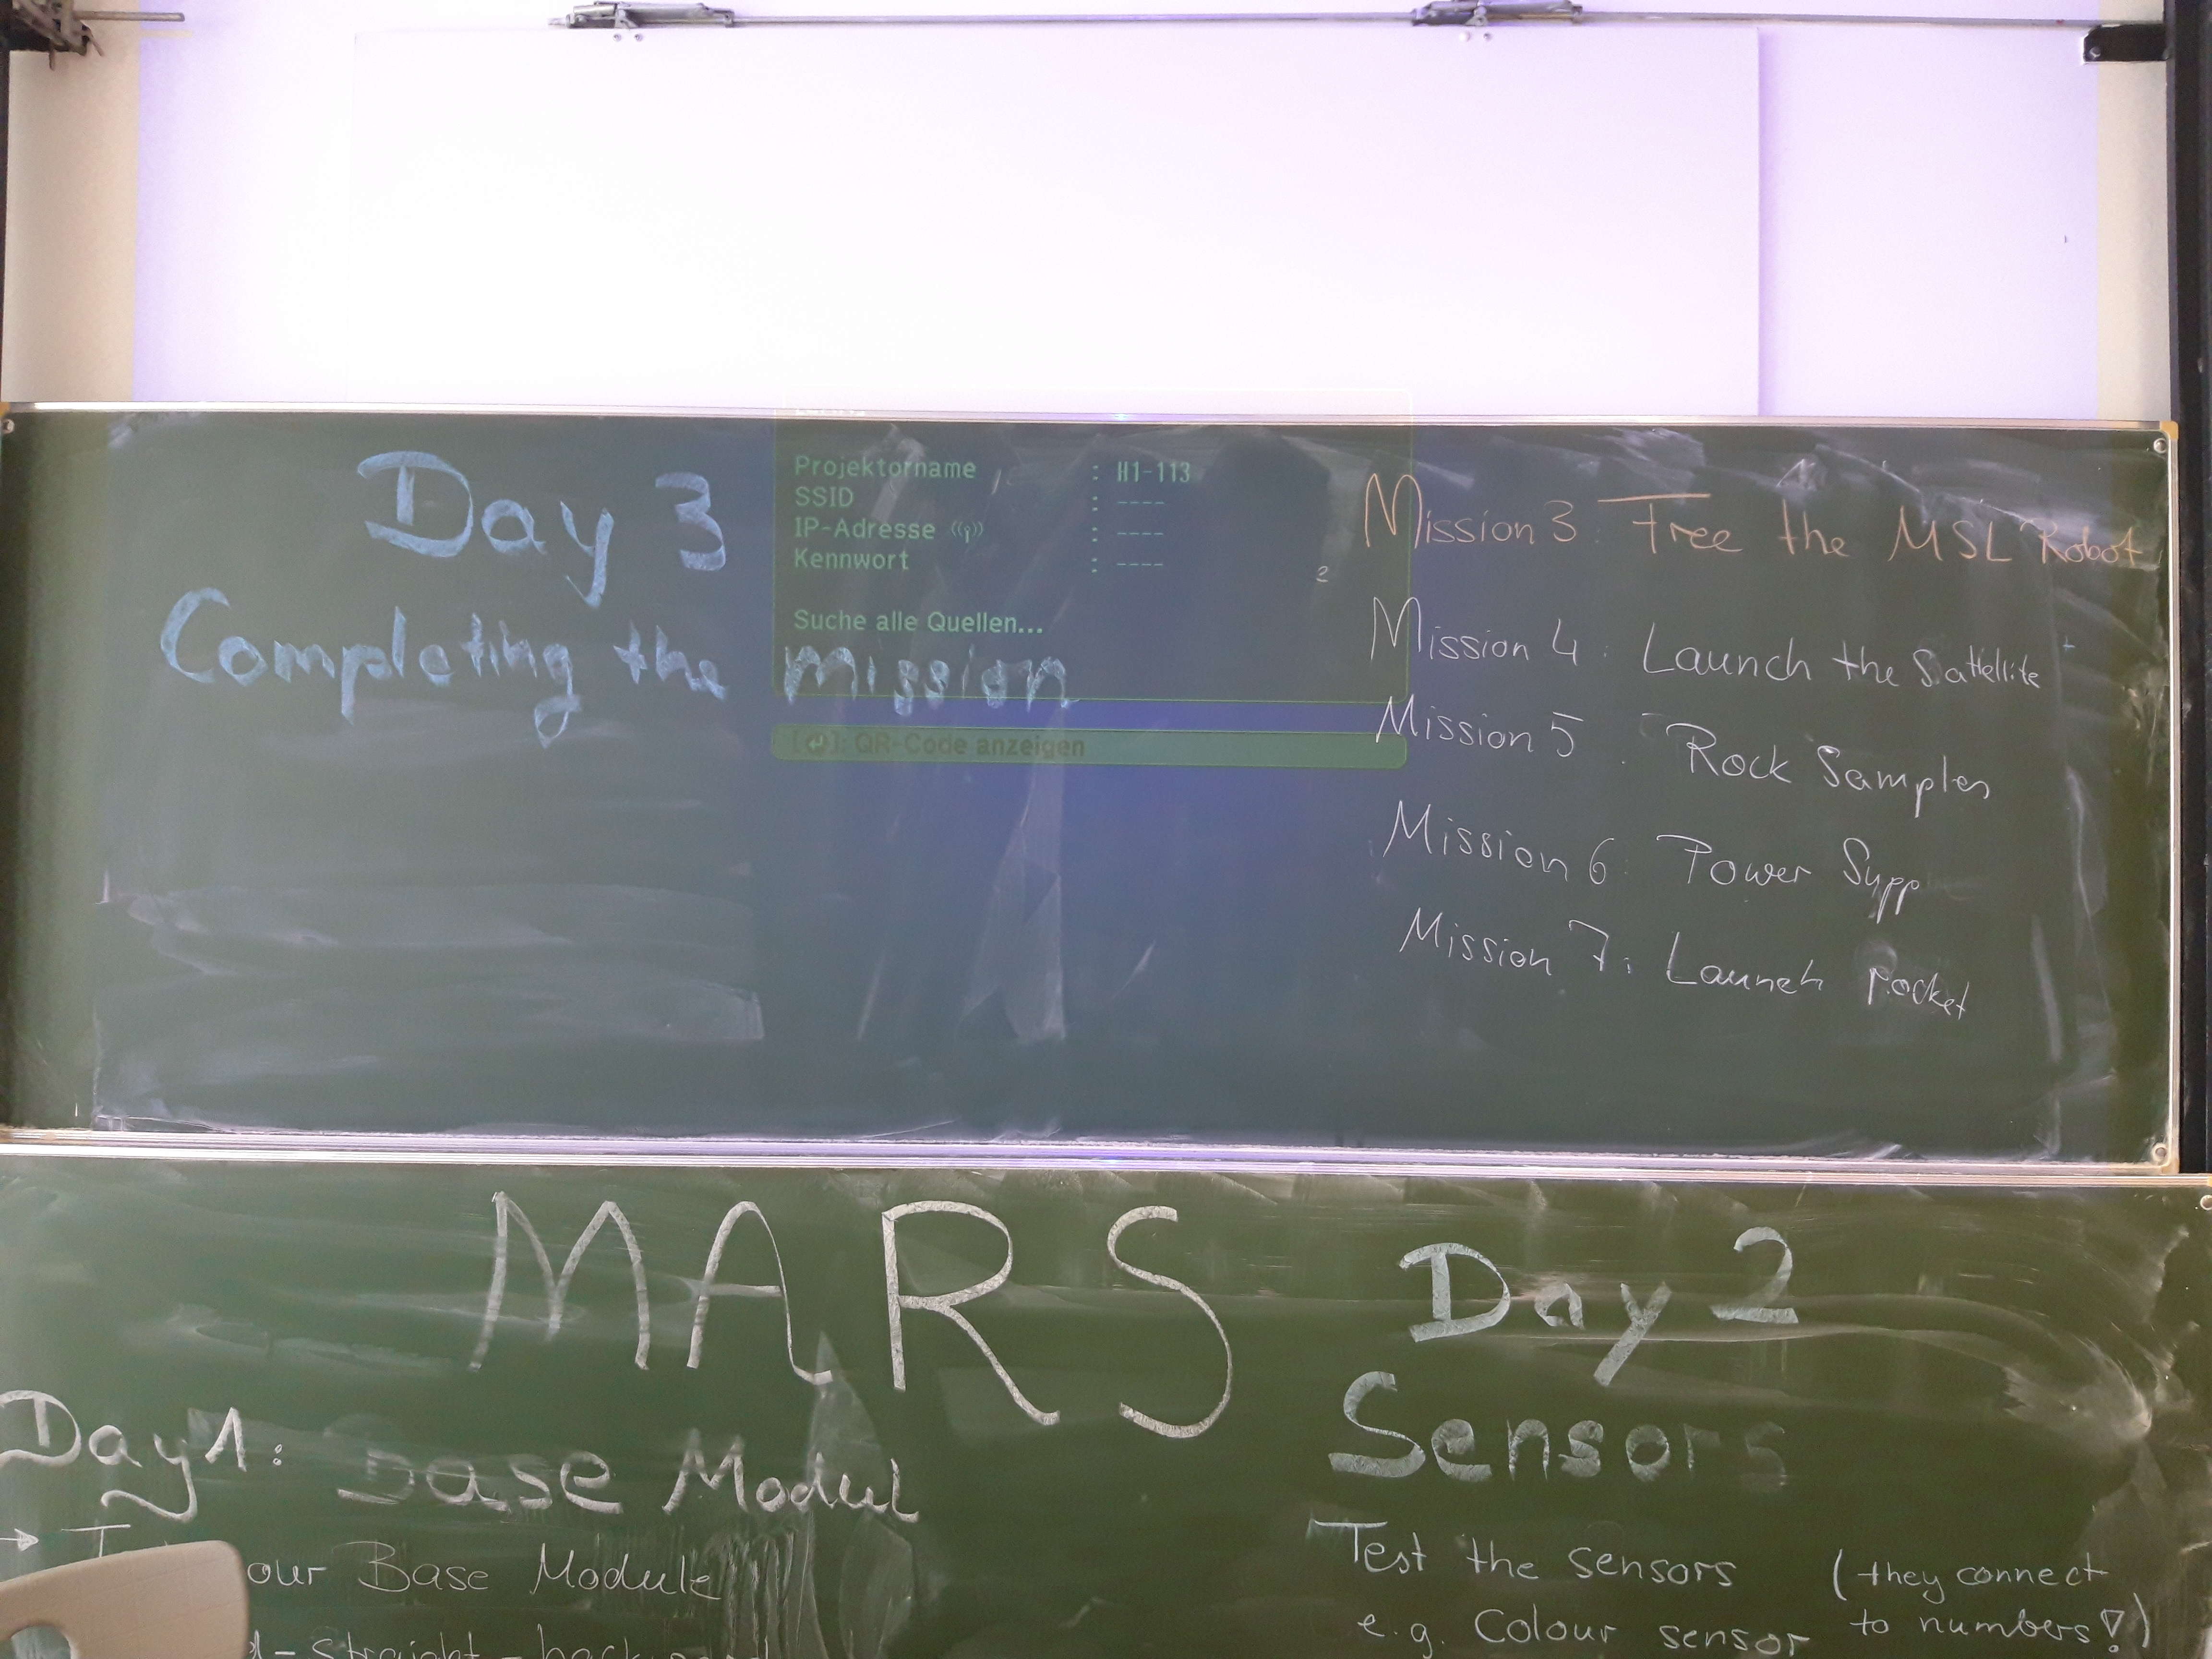 Day 3
Completing the Mission
Projektorname : H1-113
SSID : ----
IP-Adresse : ----
Kennwort : ----
Suche alle Quellen...
[↵]: QR-Code anzeigen
2
Mission 3: Free the MSL Robot
Mission 4: Launch the Sattellite
Mission 5: Rock Samples
Mission 6: Power Supp
Mission 7: Launch rocket
MARS
Day 1: Base Modul
→ our Base Module
- straight -
Day 2
Sensors
Test the sensors (they connect
e.g. Colour sensor to numbers!)